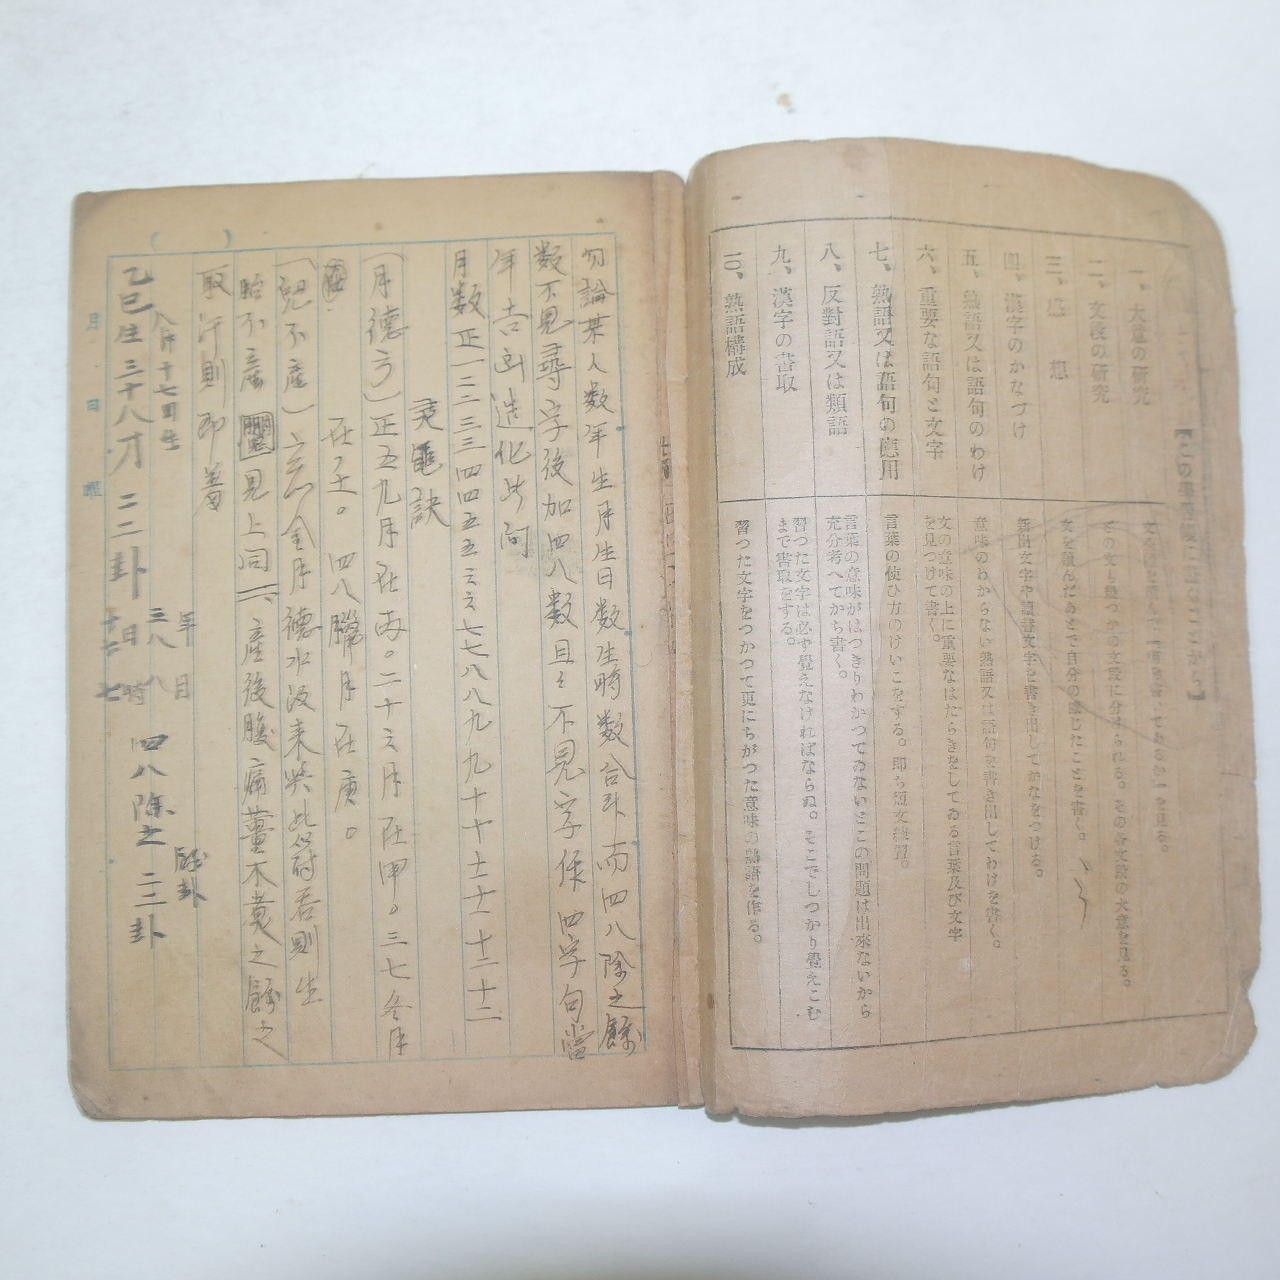 一、大意の研究
二、文段の研究
どの文も幾つかの文段に分けられる。その各文段の大意を見る。
三、感想
文を讀んだあとで自分の感じたことを書く。
四、漢字のかなづけ
新出文字や讀替文字を書き出してかなをつける。
五、熟語又は語句のわけ
意味のわからない熟語又は語句を書き出してわけを書く。
六、重要な語句と文字
文の意味の上に重要なはたらきをしてゐる言葉及び文字
を見つけて書く。
七、熟語又は語句の應用
言葉の使ひ方のけいこをする。即ち短文練習。
八、反對語又は類語
言葉の意味がはつきりわかつてゐないとこの問題は出來ないから
充分考へてから書く。
九、漢字の書取
習つた文字は必ず覺えなければならぬ。そこでしつかり覺えこむ
まで書取をする。
一〇、熟語構成
習つた文字をつかつて更にちがつた意味の熟語を作る。
勿論某人数年生月生日数生時数合計而四八除之餘
数不見尋字後加四八数且不見字候四字句當
年吉凶造化此問
月数正一二二三三四四五五六六七七八八九九十十十一十一十二十二
灵龜訣
(月德方)正五九月在丙。二十六月在甲。三七冬月
在壬。四八臘月在庚。
(兒不産)金月德水汲来煐此符呑則生
胎不産 見上同 産後腹痛 木煮之餘之
取汗則即差
八月十七日生
乙巳生三十八才 二二卦
年 三八
月 八
日 十七
時 七
四八除之 二三卦
月 日 曜